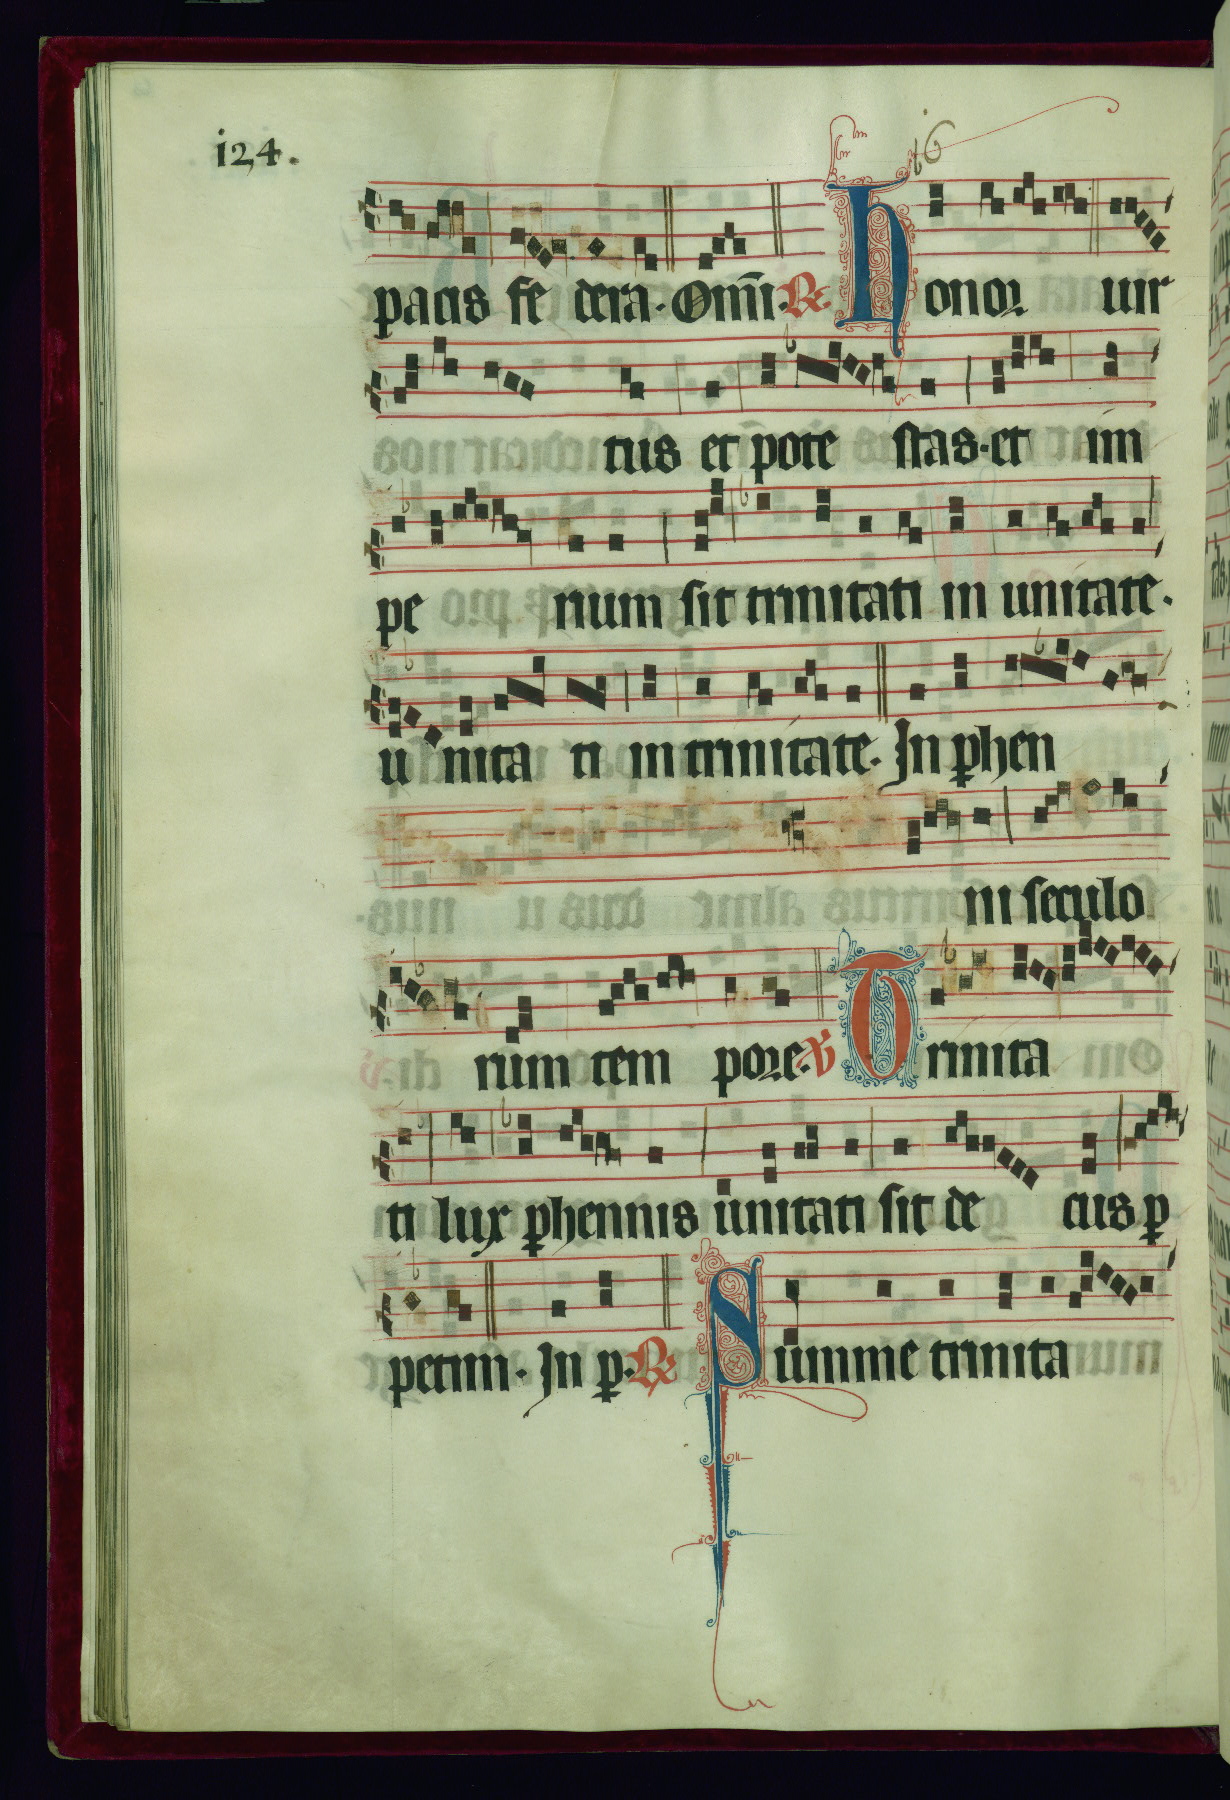 124.
16
pacis fe dera. Om̅i. ℟. Honor uir
tus et pote stas. et im
pe rium sit trinitati in unitate.
u nita ti in trinitate. In ꝑhen
ni seculo
rum tem pore. ℣ Trinita
ti lux ꝑhennis unitati sit de cus ꝑ
petim. In ꝑ. ℟ Summe trinita